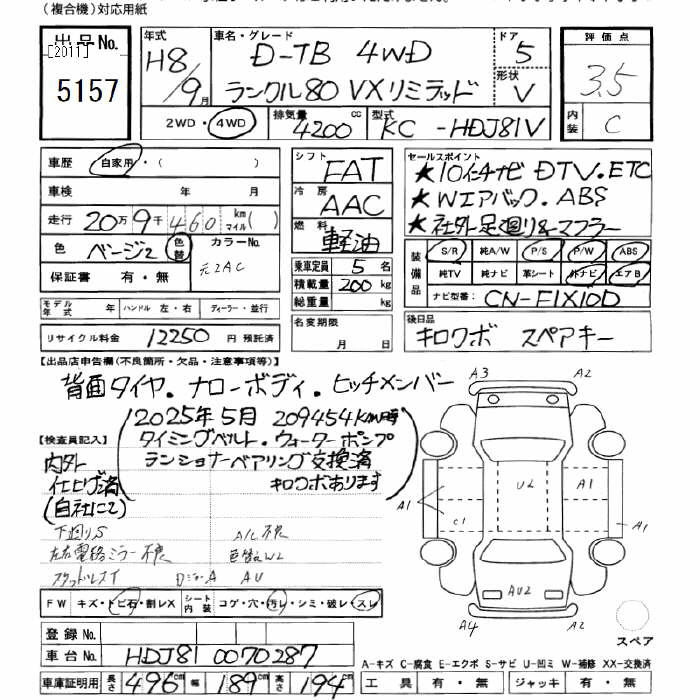 (複合機)対応用紙
出品No.
[2011]
5157
年式
H8/9月
車名・グレード
D-TB 4WD
ランクル80 VXリミテッド
ドア 5
形状 V
評価点
3.5
内装 C
2WD・4WD
排気量 4200cc
型式 KC-HDJ81V
車歴 自家用・( )
車検 年 月
走行 20万9千460 km マイル( )
色 ベージ2 色替 カラーNo. 元2AC
保証書 有・無
シフト FAT
冷房 AAC
燃料 軽油
乗車定員 5名
積載量 200kg
総重量 kg
セールスポイント
★10インチナビ DTV.ETC
★Wエアバック.ABS
★社外足廻り&マフラー
装備品
S/R 純A/W P/S P/W ABS
純TV 純ナビ 革シート 外ナビ エアB
ナビ型番: CN-F1X10D
モデル年式 年 ハンドル 左・右 ディーラー・並行
リサイクル料金 12250 円 預託済
名変期限 月 日
後日品
キロクボ スペアキー
【出品店申告欄(不良箇所・欠品・注意事項等)】
背面タイヤ.ナローボディ.ヒッチメンバー
2025年5月 209454km時
タイミングベルト.ウォーターポンプ
テンショナーベアリング交換済
キロクボあります
【検査員記入】
内外
仕上げ済
(自社にて)
下廻りS A/C不良
左右電格ミラー不良 色替えW2
スタッドレスイ AU
A3 A2
U2 A1
A1 C1 A1
AU2
A4 A2
FW キズ・トビ石・割レX シート内装 コゲ・穴・汚レ・シミ・破レ・スレ
スペア
登録No.
車台No. HDJ81 0070287
A-キズ C-腐食 E-エクボ S-サビ U-凹ミ W-補修 XX-交換済
車庫証明用 長さ 496cm 幅 189cm 高さ 194cm
工具 有・無 ジャッキ 有・無